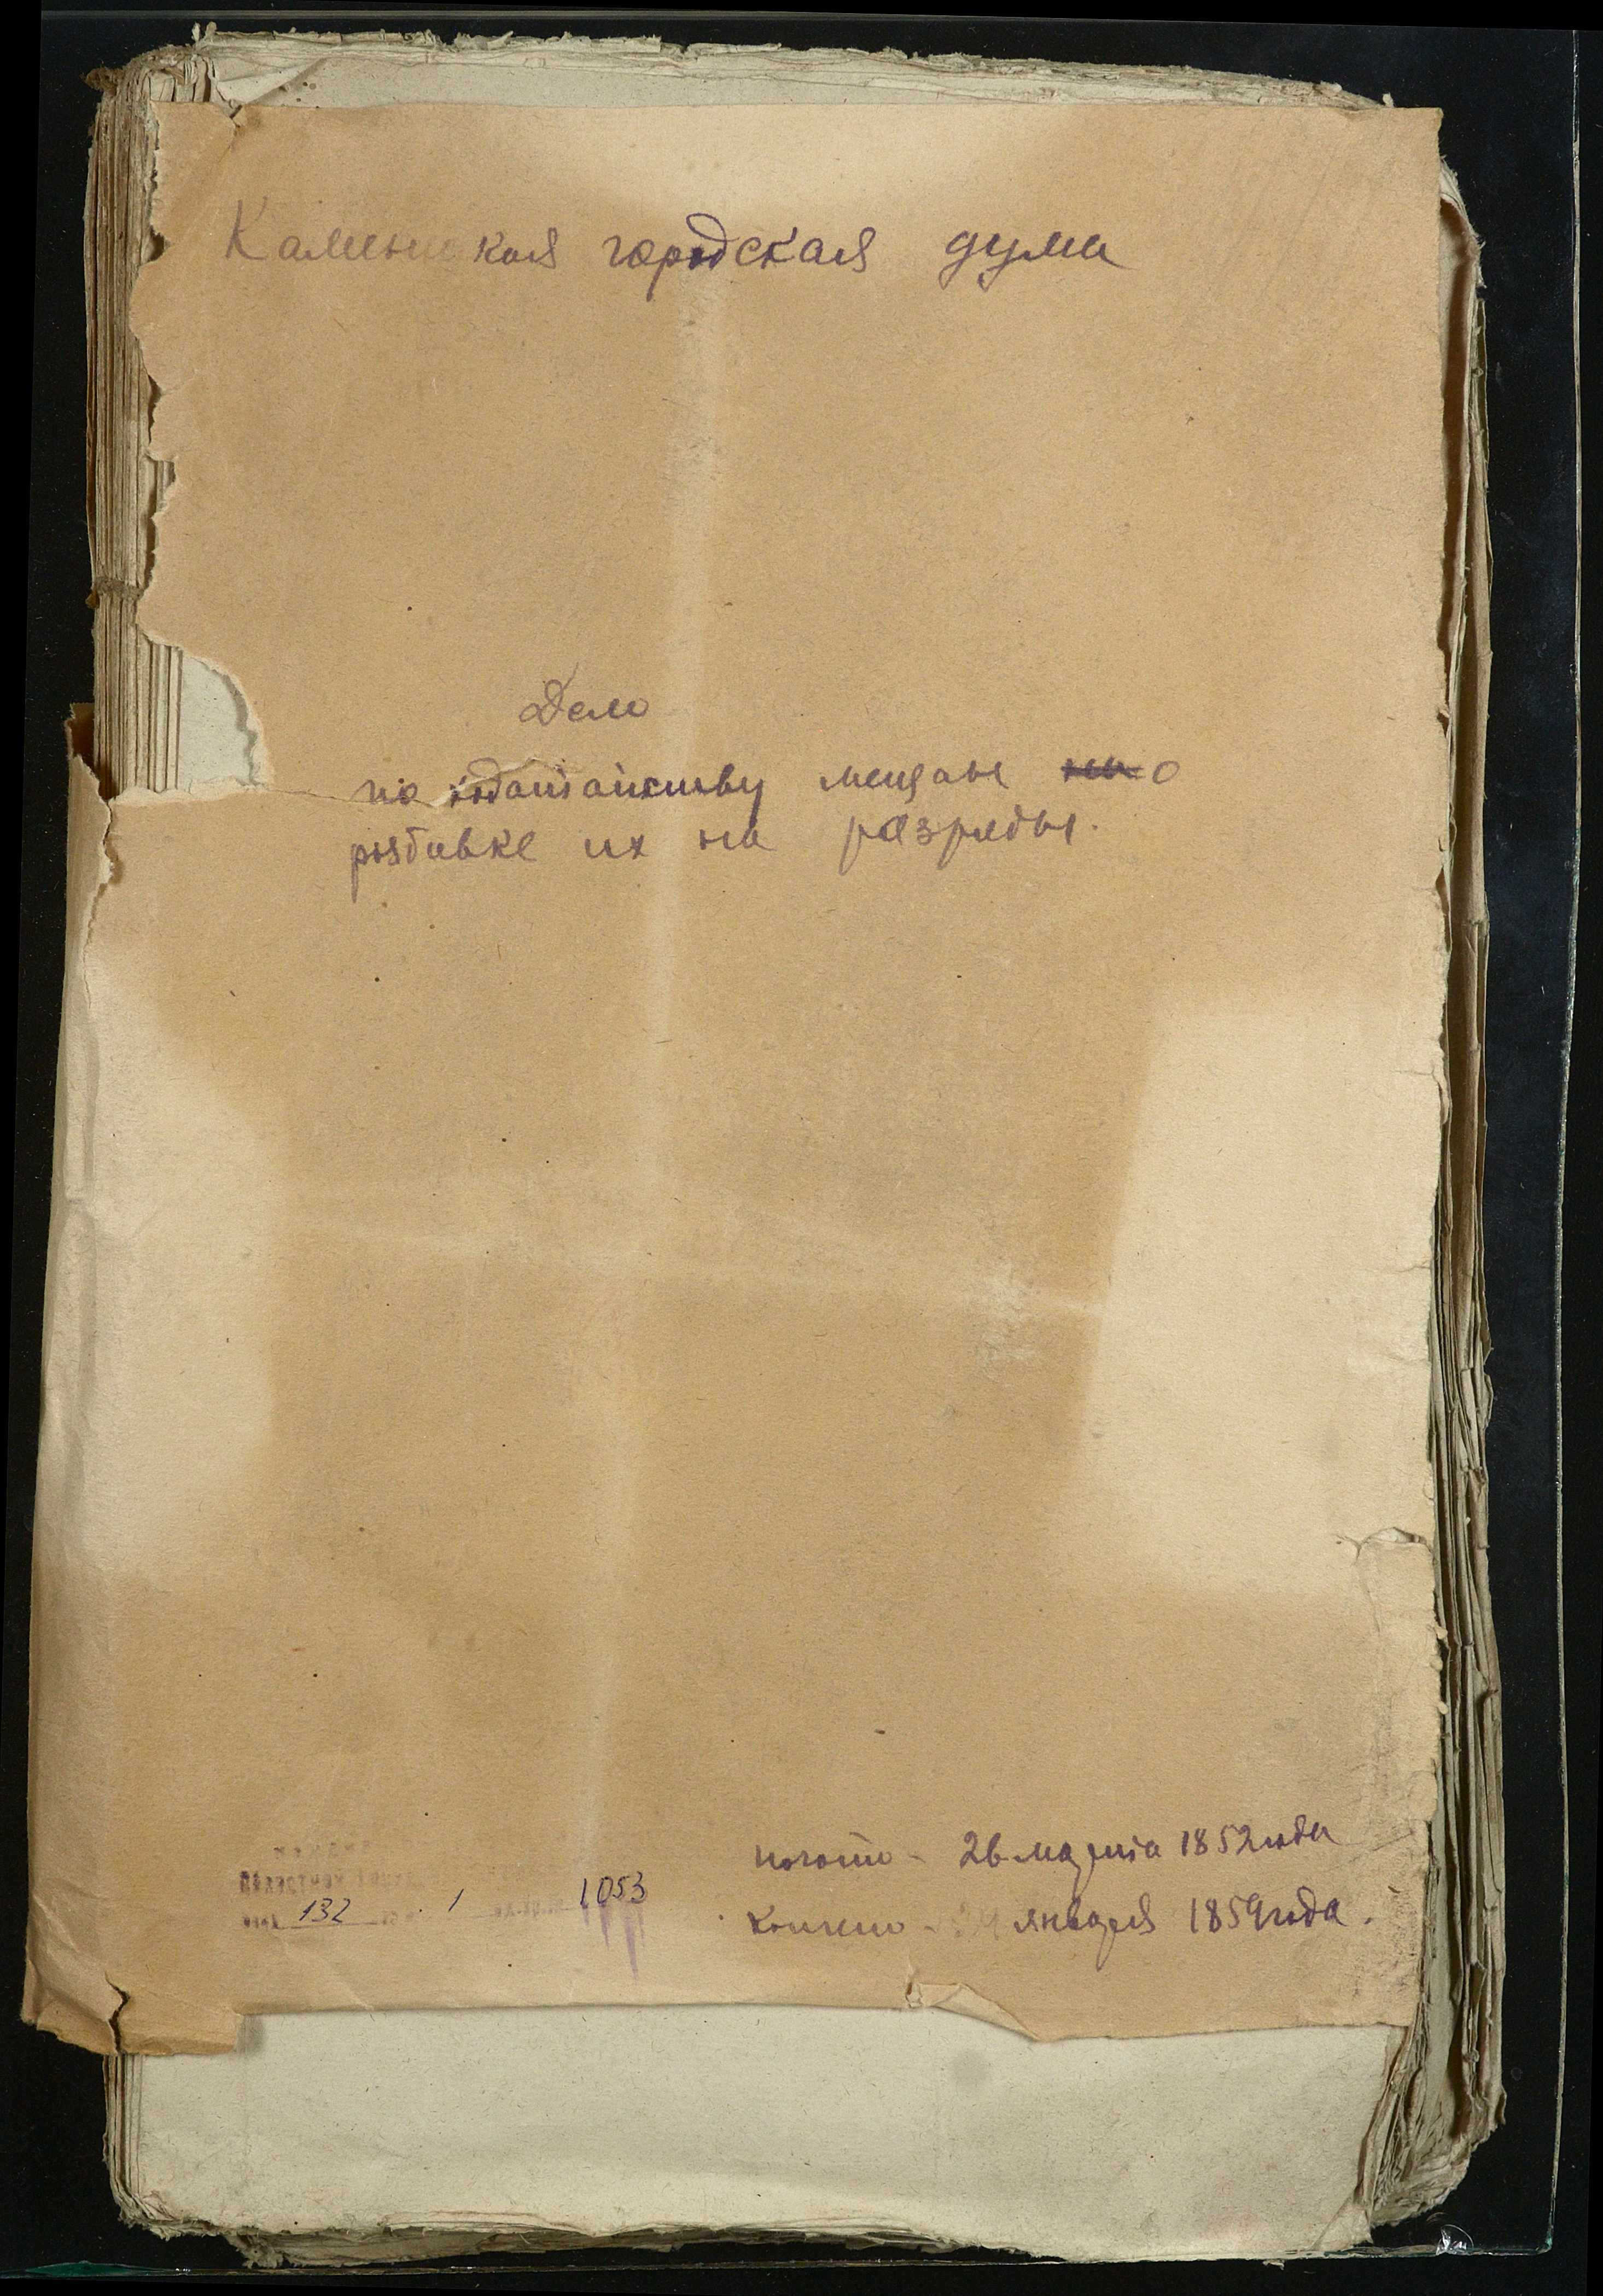 Каменецкая городская дума
Дело
по ходатайству мещан о
разбивке их на разряды.
Областной
132 1 1053
начато - 26 марта 1852 года
кончено - января 1859 года.